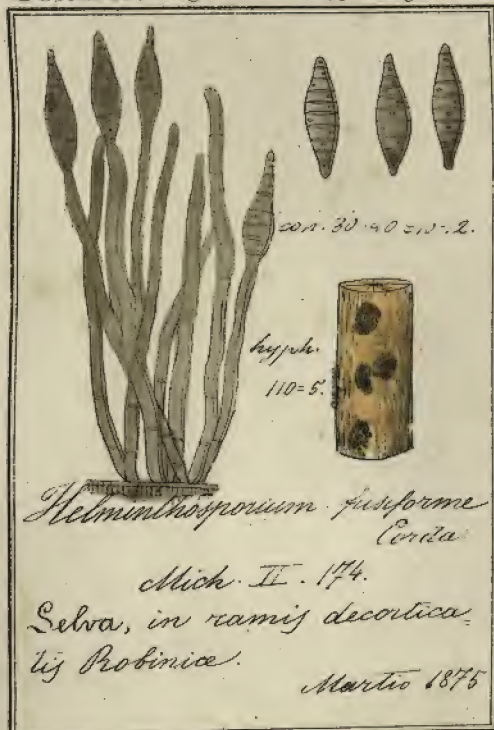 con. 30-40=10-12.
hyph.
110=5.
Helminthosporium fusiforme
Corda
Mich. II. 174.
Selva, in ramis decortica-
tis Robiniæ.
Martio 1875